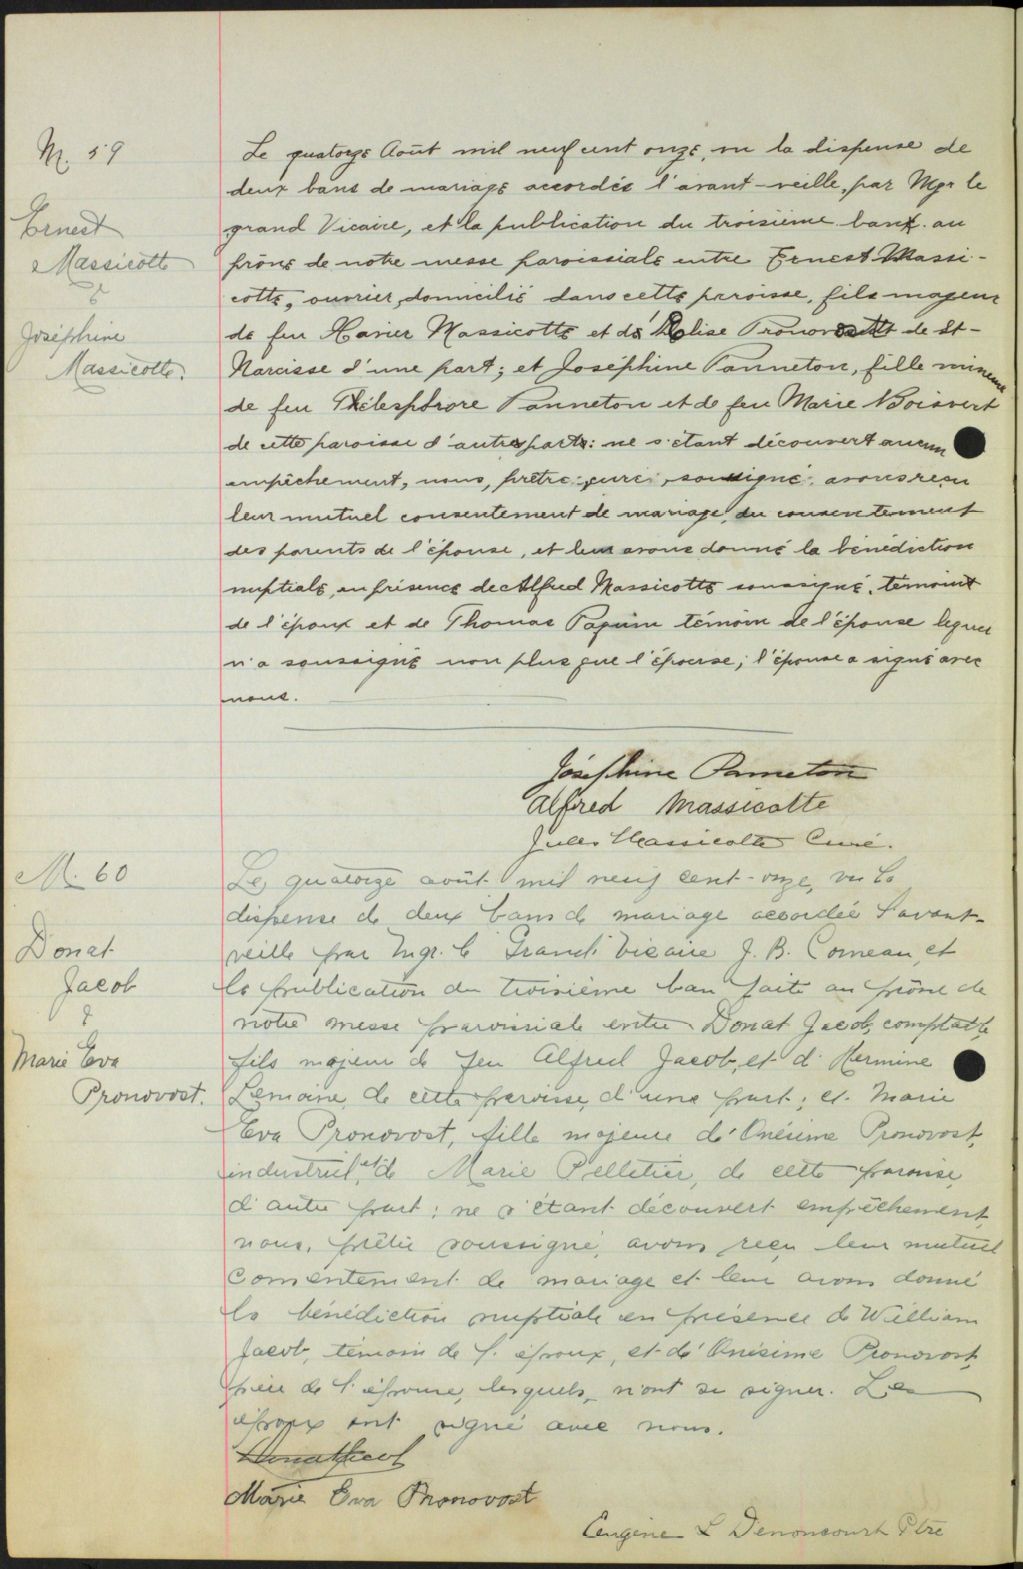 M. 59
Ernest
Massicotte
&
Joséphine
Massicotte.
Le quatorze Août mil neuf cent onze, vu la dispense de
deux bans de mariage accordés l'avant-veille, par Mgr le
grand Vicaire, et la publication du troisième ban au
prône de notre messe paroissiale entre Ernest Massi-
cotte, ouvrier, domicilié dans cette paroisse, fils majeur
de feu Xavier Massicotte et de Pronovost de St-
Narcisse d'une part; et Joséphine Panneton, fille mineure
de feu Thélesphore Panneton et de feu Marie Boisvert
de cette paroisse d'autre part: ne s'étant découvert aucun
empêchement, nous, prêtre, curé, soussigné, avons reçu
leur mutuel consentement de mariage, du consentement
des parents de l'épouse, et leur avons donné la bénédiction
nuptiale, en présence de Alfred Massicotte soussigné, témoin
de l'époux et de Thomas témoin de l'épouse lequel
n'a soussigné non plus que l'épouse; l'épouse a signé avec
nous.
Joséphine Panneton
Alfred Massicotte
Jules Massicotte Curé.
M. 60
Donat
Jacob
&
Marie Eva
Pronovost.
Le quatorze août mil neuf cent-onze, vu la
dispense de deux bans de mariage accordée l'avant-
veille par Mgr. le Grand Vicaire J. B. Comeau, et
la publication du troisième ban faite au prône de
notre messe paroissiale entre Donat Jacob, comptable,
fils majeur de feu Alfred Jacob, et d'Hermine
Lemaire, de cette paroisse, d'une part; et Marie
Eva Pronovost, fille majeure d'Onésime Pronovost,
industriel, et de Marie Pelletier, de cette paroisse,
d'autre part: ne s'étant découvert empêchement,
nous, prêtre soussigné, avons reçu leur mutuel
consentement de mariage et leur avons donné
la bénédiction nuptiale en présence de William
Jacob, témoin de l'époux, et d'Onésime Pronovost,
père de l'épouse, lesquels n'ont su signer. Les
époux ont signé avec nous.
Donat Jacob
Marie Eva Pronovost
Eugène L Denoncourt Ptre